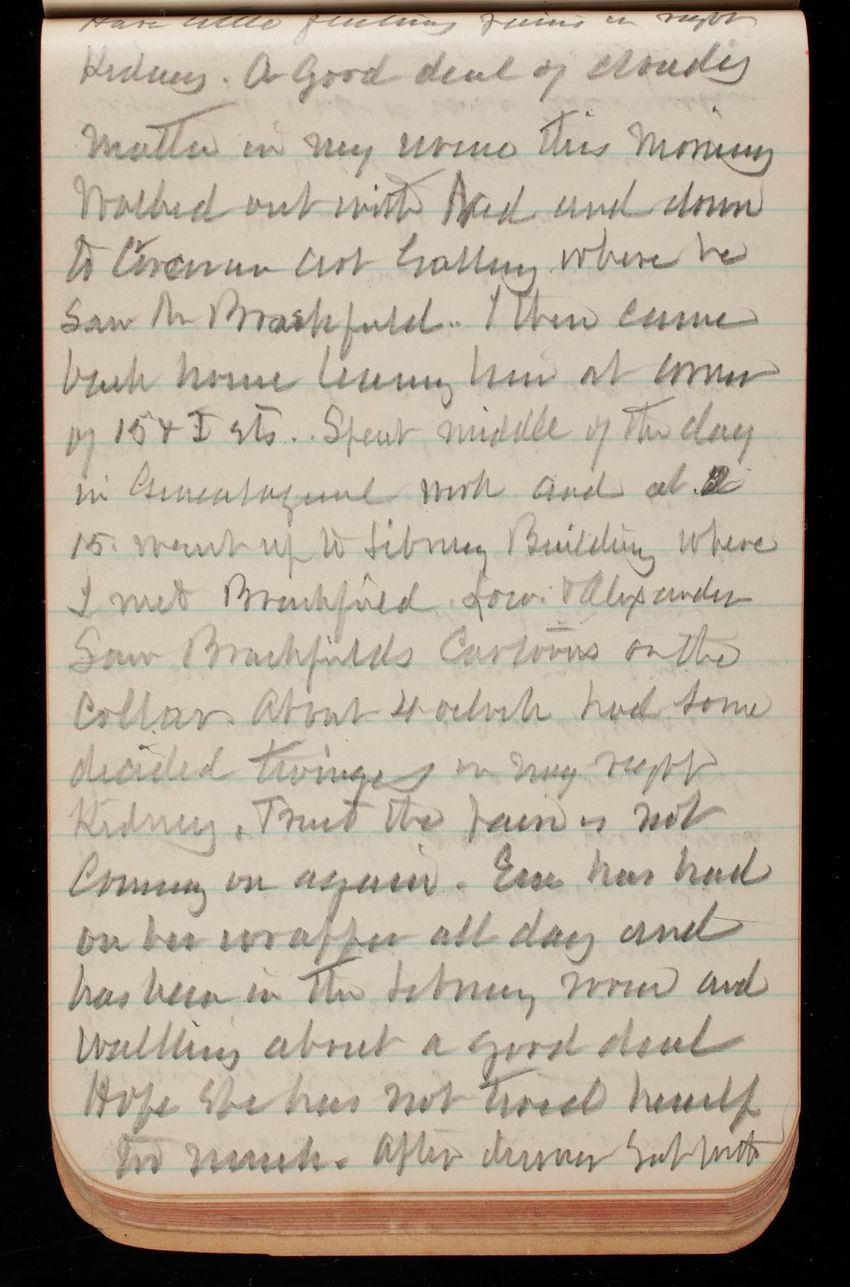 Have little pains in right
Kidney. A Good deal of cloudy
matter in my urine this Morning
Walked out with Ned and down
to Corcoran Art Gallery where he
Saw Mr Brashfield. I then came
back home leaving him at corner
of 15 & I sts. Spent middle of the day
in Genealogical work and at 2
15. went up to Library Building where
I met Brashfield. Low. & Alexander
Saw Brashfields Cartoons on the
Collar. About 4 oclock had some
decided twinges in my right
Kidney. Trust the pain is not
Coming on again. Em has had
on her wrapper all day and
has been in the Library room and
Walking about a good deal
Hope She has not tired herself
too much. After dinner Sat with